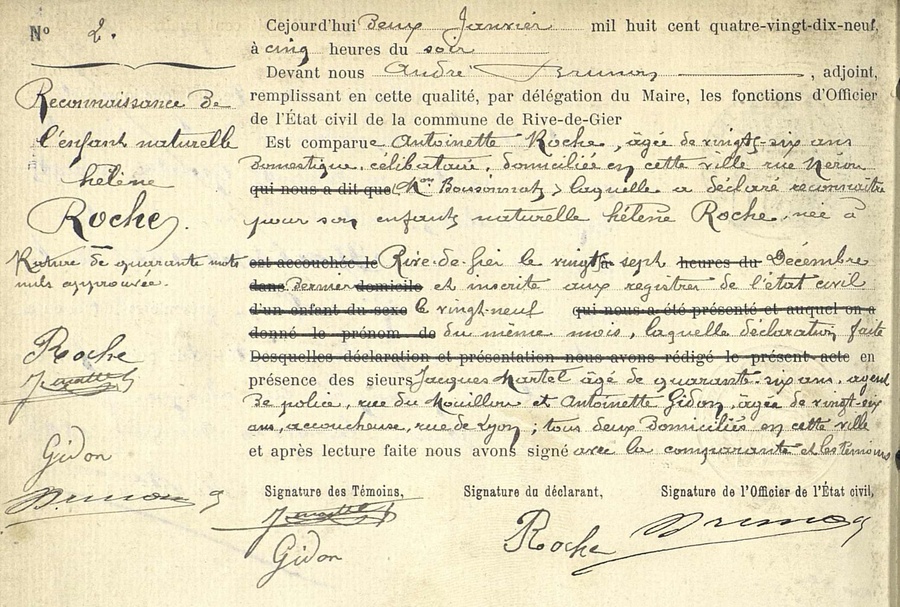 N° 2.
Reconnaissance de
l'enfant naturelle
hélène
Roche.
Rature de quarante mots
nuls approuvée.
Roche
J Martel
Gidon
Brunon
Cejourd'hui Deux Janvier mil huit cent quatre-vingt-dix-neuf,
à cinq heures du soir
Devant nous André Brunon, adjoint,
remplissant en cette qualité, par délégation du Maire, les fonctions d'Officier
de l'État civil de la commune de Rive-de-Gier
Est comparue Antoinette Roche, âgée de vingt-six ans
Domestique, célibataire, domiciliée en cette ville rue Néron
qui nous a dit que (Mon Boissonnat) laquelle a déclaré reconnaître
pour son enfant naturelle hélène Roche, née à
est accouchée le Rive-de-Gier le vingt à sept heures du Décembre
dans Dernier domicile et inscrite aux registres de l'état civil
d'un enfant du sexe le vingt-neuf qui nous a été présenté et auquel on a
donné le prénom de du même mois, laquelle déclaration faite
Desquelles déclaration et présentation nous avons rédigé le présent acte en
présence des sieurs Jacques Martel âgé de quarante-six ans, agent
De police, rue du Mouillon et Antoinette Gidon, âgée de vingt-six
ans, accoucheuse, rue de Lyon ; tous deux Domiciliés en cette ville
et après lecture faite nous avons signé avec la comparante et les témoins
Signature des Témoins, Signature du déclarant, Signature de l'Officier de l'État civil,
J Martel
Gidon
Roche
Brunon